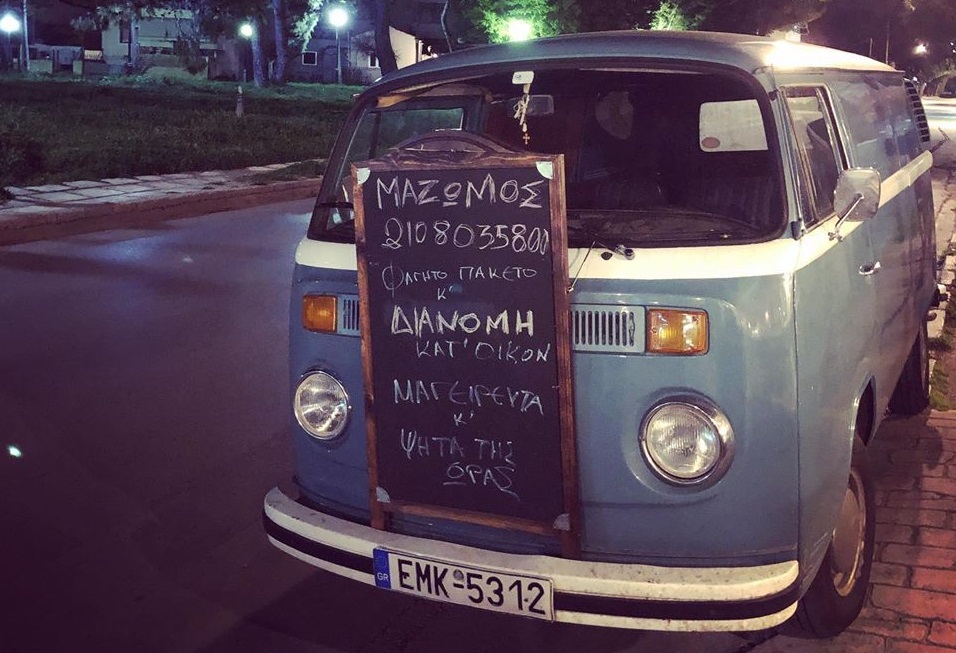 ΜΑΖΩΜΟΣ
2108035800
ΦΑΓΗΤΟ ΠΑΚΕΤΟ
Κ'
ΔΙΑΝΟΜΗ
ΚΑΤ' ΟΙΚΟΝ
ΜΑΓΕΙΡΕΥΤΑ
Κ'
ΨΗΤΑ ΤΗΣ
ΩΡΑΣ
GR
EMK-5312